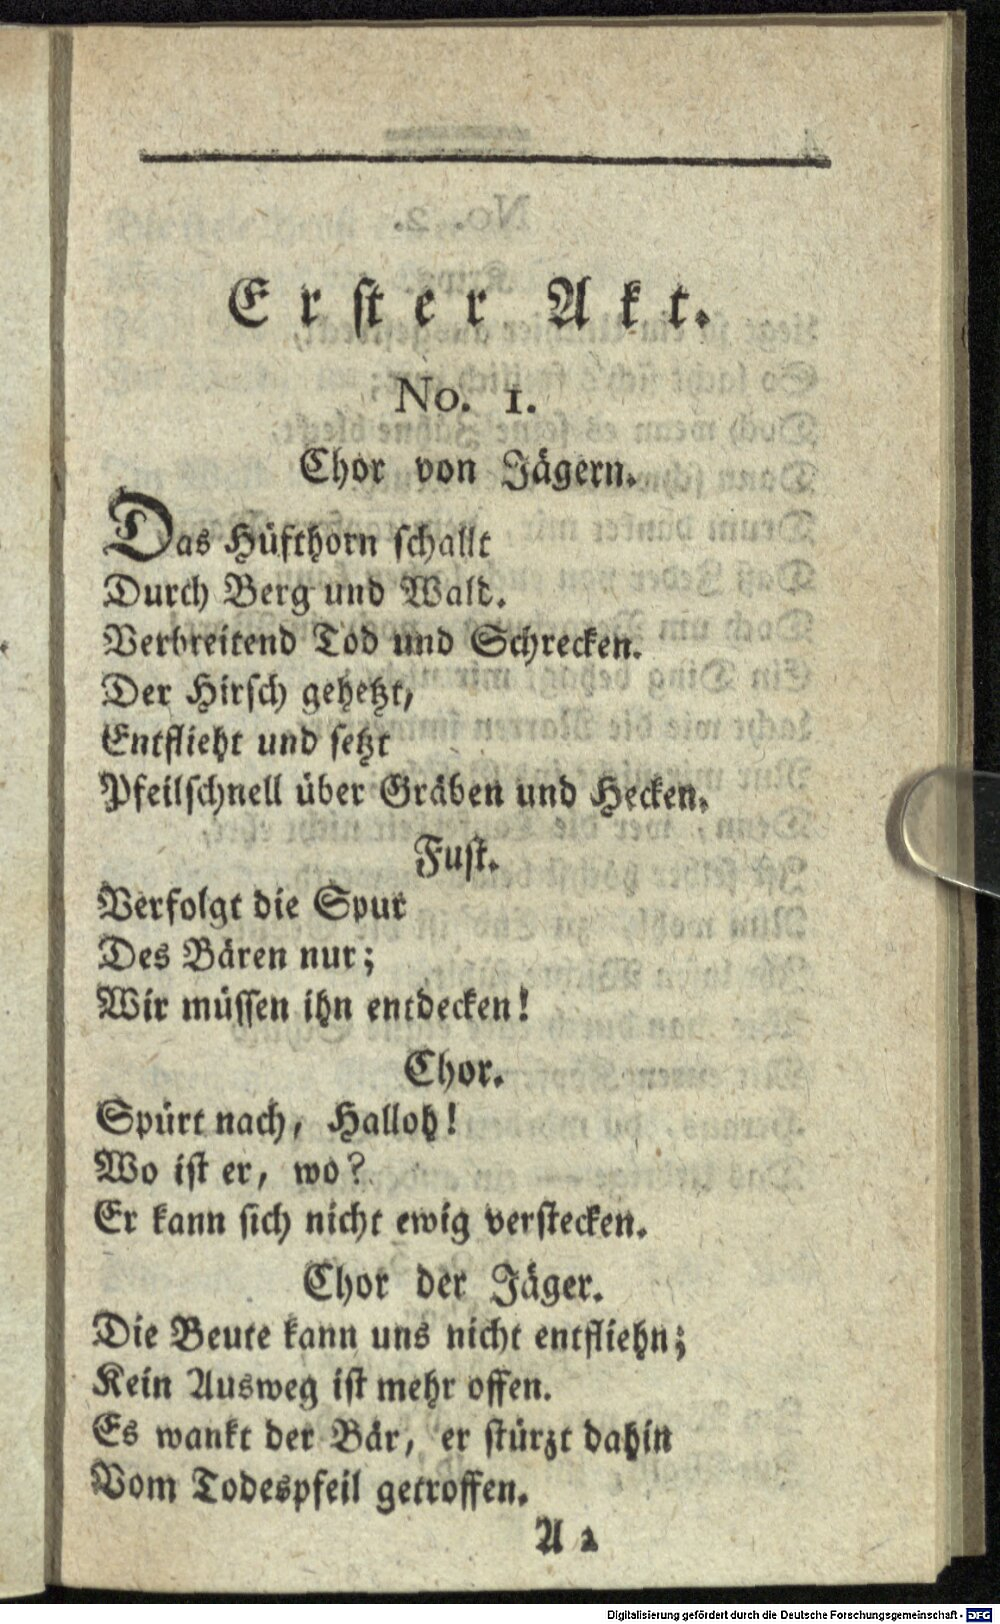 Erster Akt.
No. 1.
Chor von Jägern.
Das Hüfthorn schallt
Durch Berg und Wald.
Verbreitend Tod und Schrecken.
Der Hirsch gehetzt,
Entflieht und setzt
Pfeilschnell über Gräben und Hecken.
Fust.
Verfolgt die Spur
Des Bären nur;
Wir müssen ihn entdecken!
Chor.
Spürt nach, Halloh!
Wo ist er, wo?
Er kann sich nicht ewig verstecken.
Chor der Jäger.
Die Beute kann uns nicht entfliehn;
Kein Ausweg ist mehr offen.
Es wankt der Bär, er stürzt dahin
Vom Todespfeil getroffen.
A 2
Digitalisierung gefördert durch die Deutsche Forschungsgemeinschaft - DFG